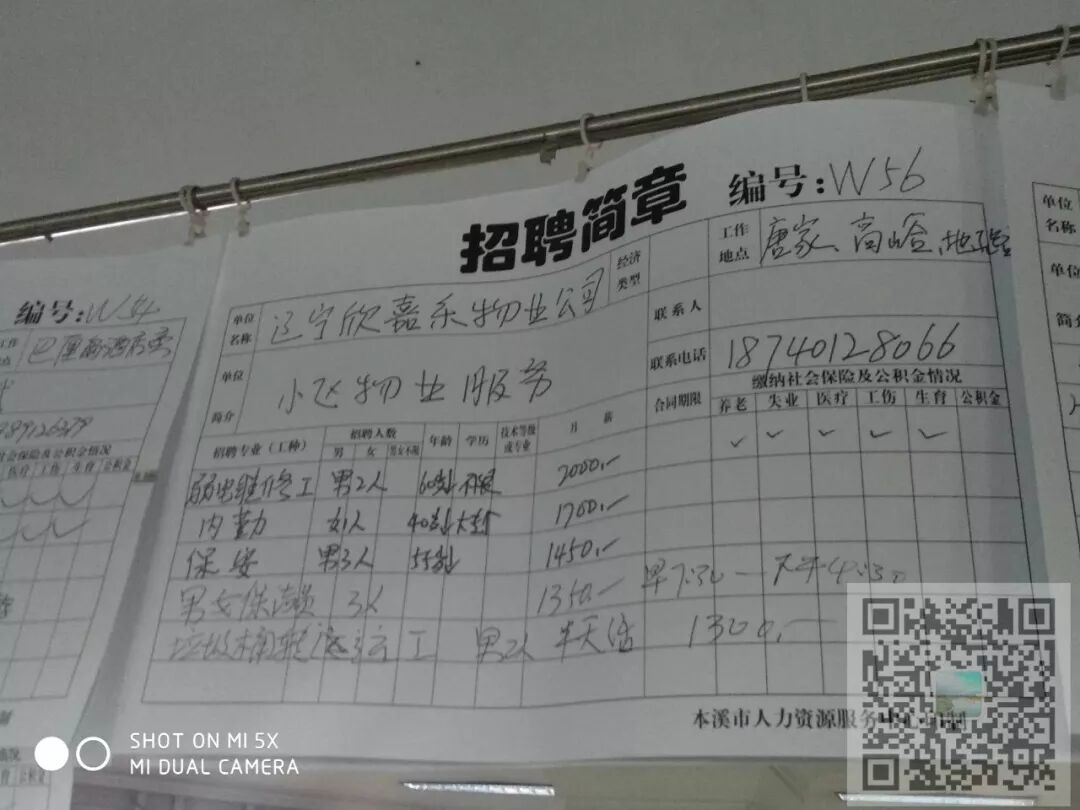 招聘简章
编号:W56
单位名称 辽宁欣嘉乐物业公司 经济类型 工作地点 唐家、高峪、
联系人
单位简介 物业服务 联系电话 18740128066
合同期限 缴纳社会保险及公积金情况
养老 失业 医疗 工伤 生育 公积金
招聘专业(工种) 招聘人数 年龄 学历 技术等级或专业 月薪
男 女 男女不限
弱电维修工 男2人 60岁 不限 2000.-
内勤 女1人 40岁 大专 1700.-
保安 男3人 55岁 1450.-
男女保洁员 3人 1350.- 早7:30一下午4:30
垃圾桶转运工 男2人 半天活 1300.-
本溪市人力资源服务中心印制
编号:W54
工作
点
社会保险及公积金情况
医疗 工伤 生育 公积金
单位名称
单位
SHOT ON MI 5X
MI DUAL CAMERA